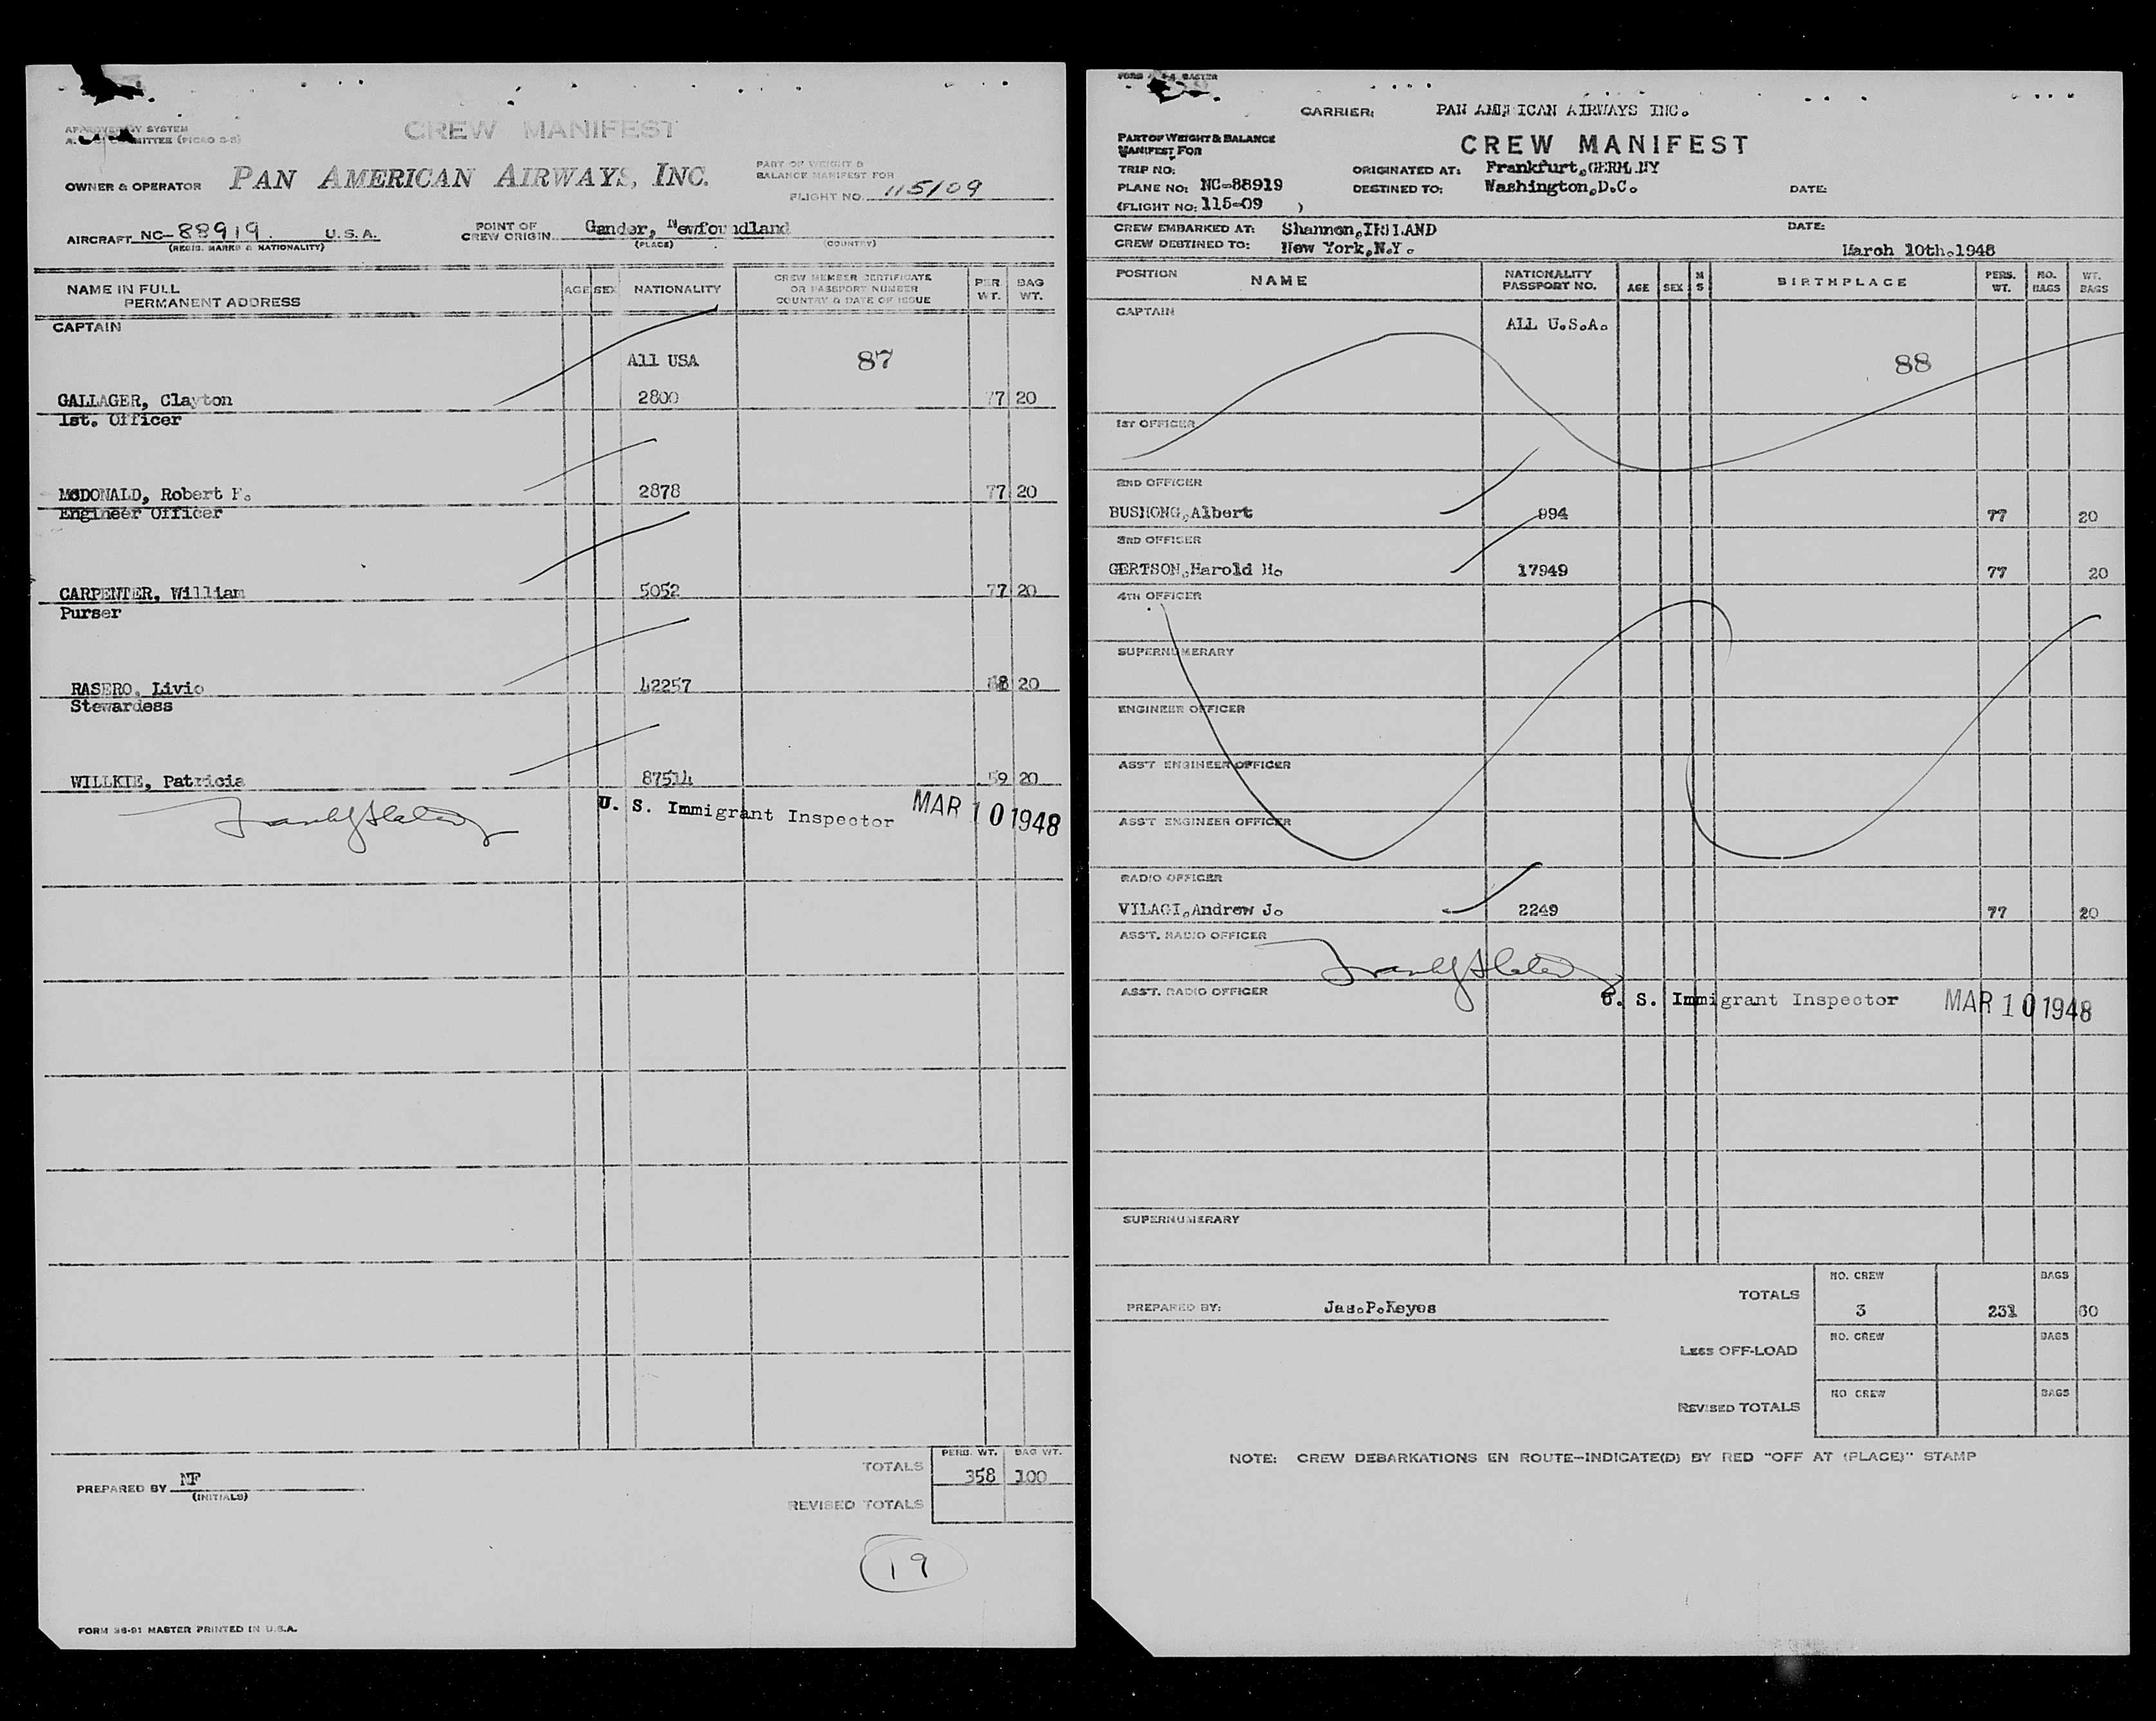 CREW MANIFEST
OWNER & OPERATOR PAN AMERICAN AIRWAYS, INC.
PART OF WEIGHT &
BALANCE MANIFEST FOR
FLIGHT NO. 115/09
AIRCRAFT NC-88919. U.S.A.
(REGIS. MARKS & NATIONALITY)
POINT OF
CREW ORIGIN Gander, Newfoundland
(PLACE) (COUNTRY)
NAME IN FULL
PERMANENT ADDRESS
AGE SEX NATIONALITY
CREW MEMBER CERTIFICATE
OR PASSPORT NUMBER
COUNTRY & DATE OF ISSUE
PER. WT. BAG WT.
CAPTAIN
All USA 87
GALLAGER, Clayton 2800 77 20
1st. Officer
McDONALD, Robert F. 2878 77 20
Engineer Officer
CARPENTER, William 5052 77 20
Purser
RASERO, Livio 42257 68 20
Stewardess
WILLKIE, Patricia 87514 59 20
U. S. Immigrant Inspector MAR 10 1948
PERS. WT. BAG WT.
TOTALS 358 100
PREPARED BY NF
(INITIALS)
REVISED TOTALS
19
FORM 36-91 MASTER PRINTED IN U.S.A.
CARRIER: PAN AMERICAN AIRWAYS INC.
PART OF WEIGHT & BALANCE
MANIFEST FOR
CREW MANIFEST
TRIP NO: ORIGINATED AT: Frankfurt, GERMANY
PLANE NO: NC-88919 DESTINED TO: Washington, D.C. DATE:
(FLIGHT NO: 115-09 )
CREW EMBARKED AT: Shannon, IRELAND DATE:
CREW DESTINED TO: New York, N.Y. March 10th. 1948
POSITION NAME NATIONALITY PASSPORT NO. AGE SEX M S BIRTHPLACE PERS. WT. NO. BAGS WT. BAGS
CAPTAIN
ALL U.S.A.
88
1ST OFFICER
2ND OFFICER
BUSHONG, Albert 994 77 20
3RD OFFICER
GERTSON, Harold H. 17949 77 20
4TH OFFICER
SUPERNUMERARY
ENGINEER OFFICER
ASS'T ENGINEER OFFICER
ASS'T ENGINEER OFFICER
RADIO OFFICER
VILAGI, Andrew J. 2249 77 20
ASS'T. RADIO OFFICER
ASS'T. RADIO OFFICER
U. S. Immigrant Inspector MAR 10 1948
SUPERNUMERARY
NO. CREW BAGS
TOTALS 3 231 60
PREPARED BY: Jas.P.Keyes
NO. CREW BAGS
LESS OFF-LOAD
NO CREW BAGS
REVISED TOTALS
NOTE: CREW DEBARKATIONS EN ROUTE-INDICATE(D) BY RED "OFF AT (PLACE)" STAMP